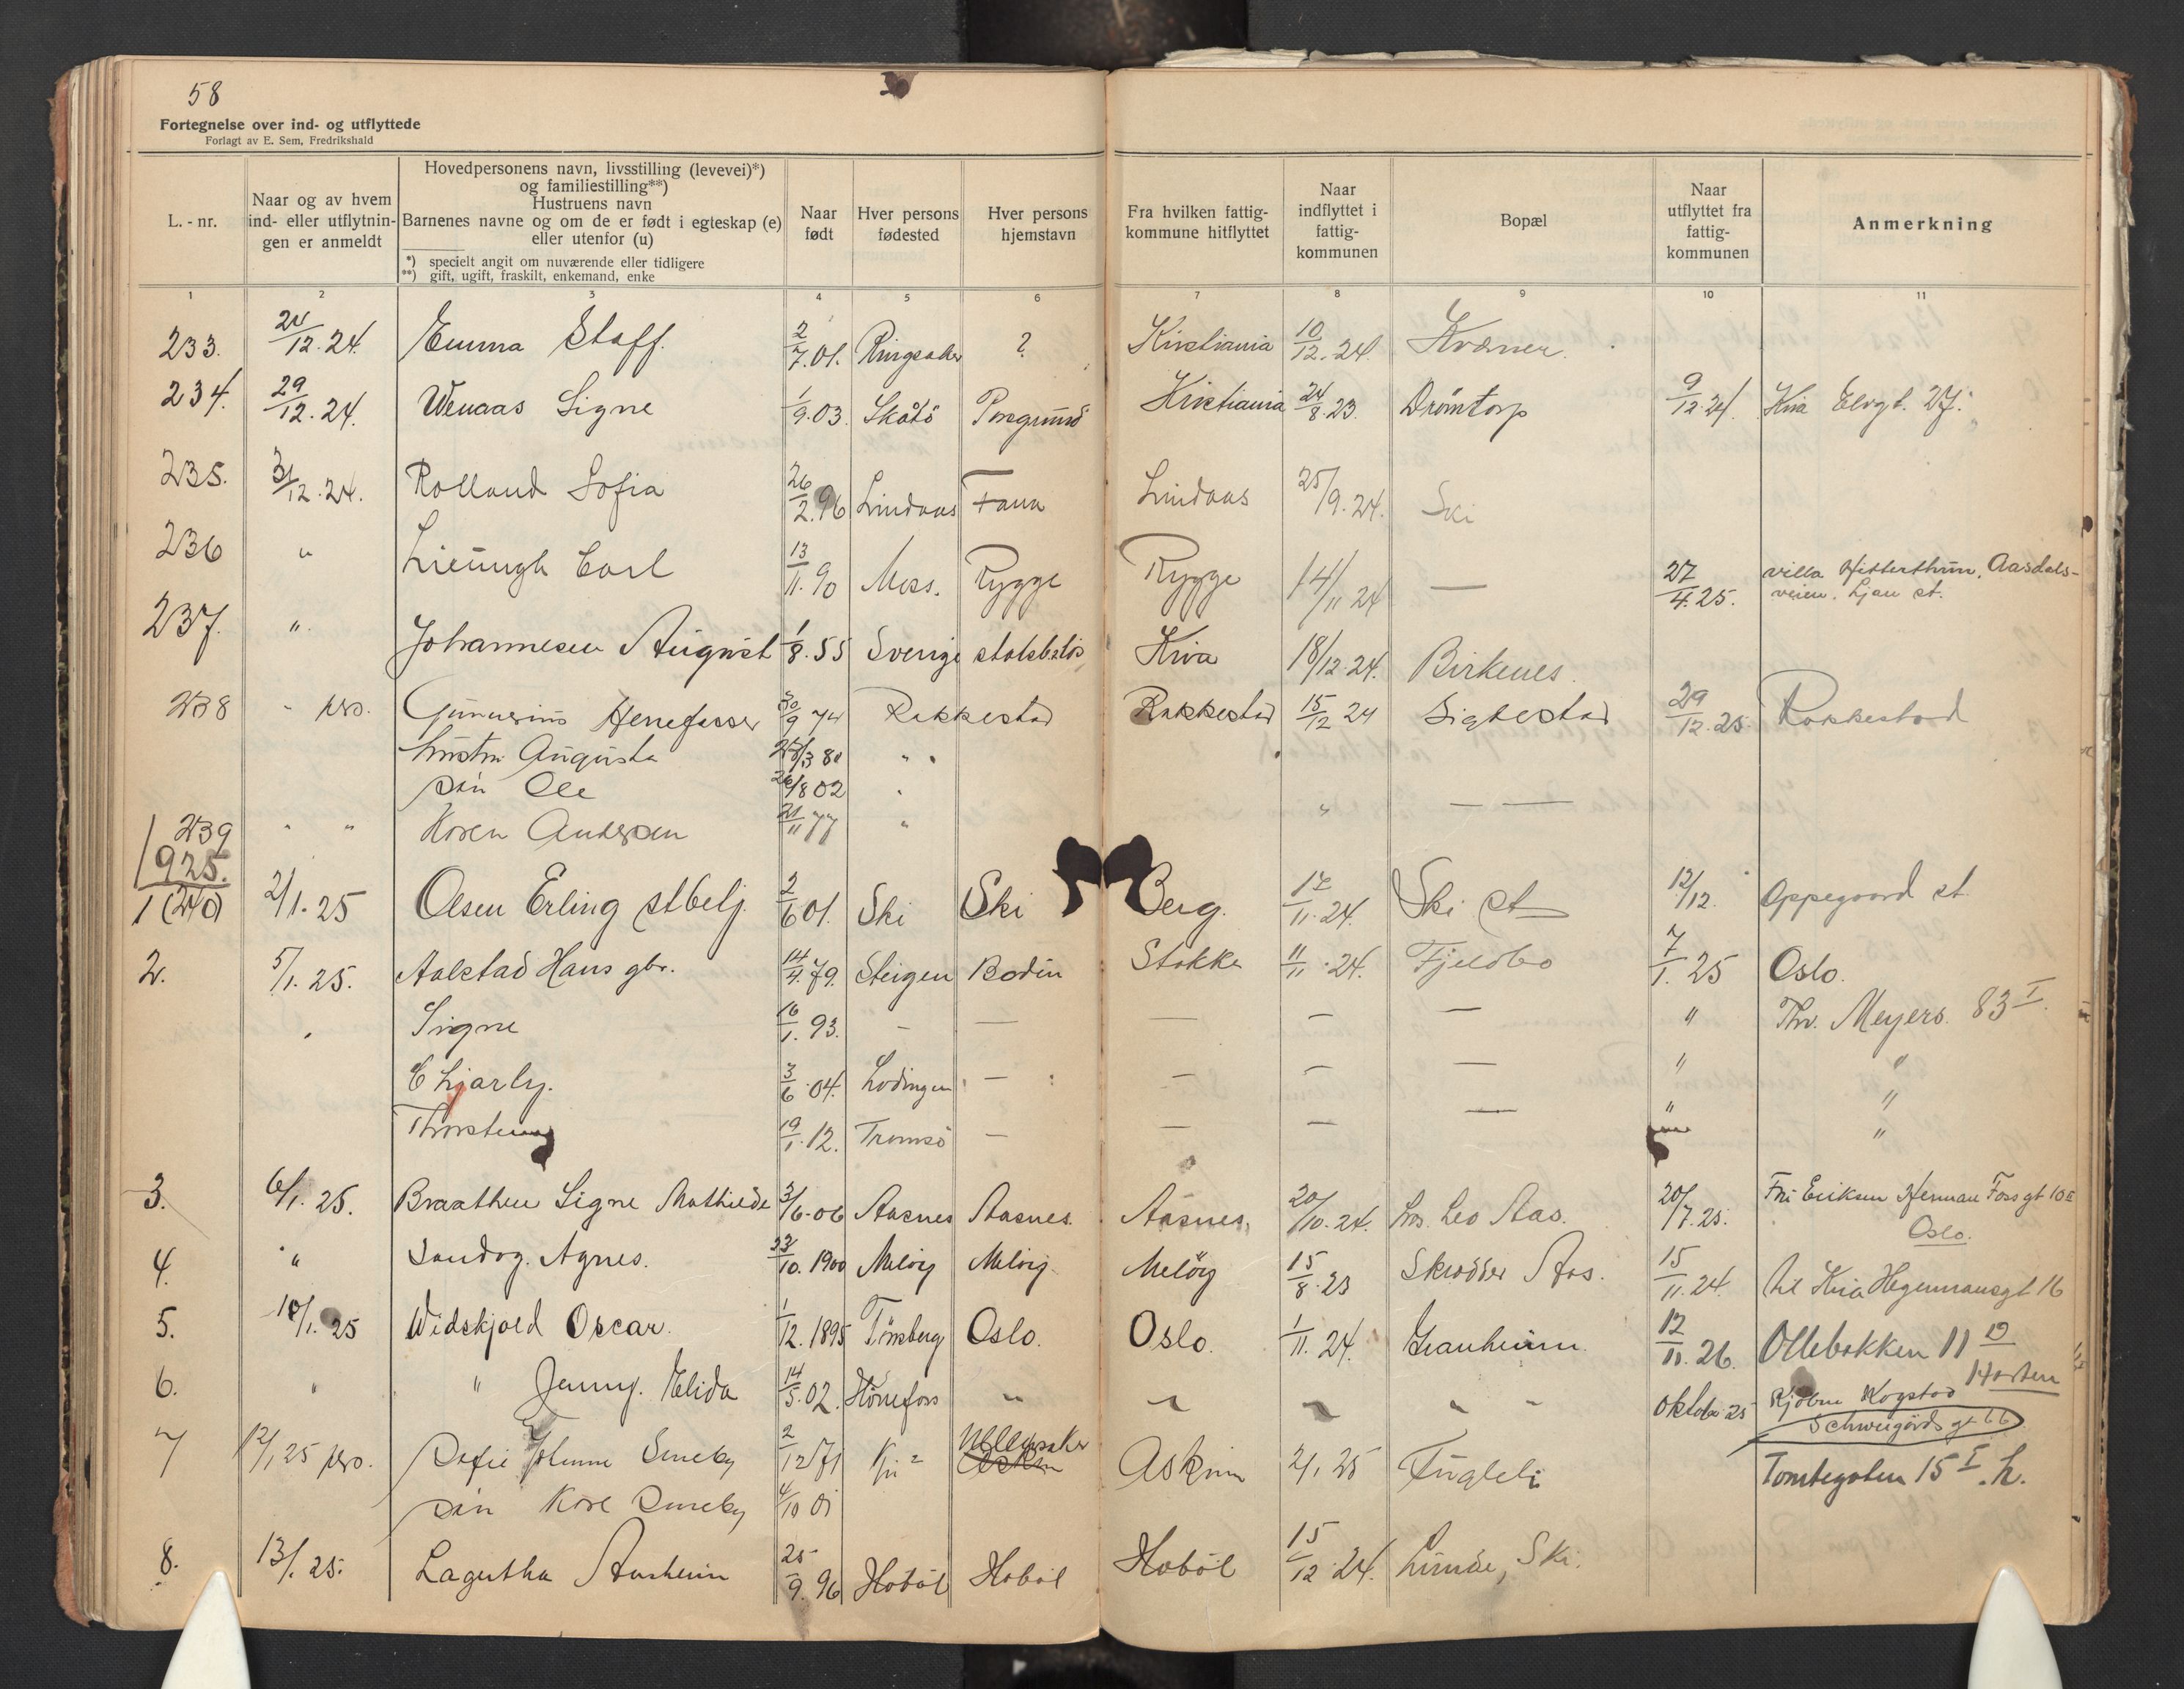 58
Fortegnelse over ind- og utflyttede
Forlagt av E. Sem, Fredrikshald
L. - nr.
Naar og av hvem ind- eller utflytnin- gen er anmeldt
Hovedpersonens navn, livsstilling (levevei)*)
og familiestilling**)
Hustruens navn
Barnenes navne og om de er født i egteskap (e)
eller utenfor (u)
*) specielt angit om nuværende eller tidligere
**) gift, ugift, fraskilt, enkemand, enke
Naar født
Hver persons fødested
Hver persons hjemstavn
Fra hvilken fattig- kommune hitflyttet
Naar indflyttet i fattig- kommunen
Bopæl
Naar utflyttet fra fattig- kommunen
Anmerkning
1 2 3 4 5 6 7 8 9 10 11
233. 24/12.24. Emma Staff. 2/7.01. Ringsaker ? Kristiania 10/12.24. Kværner.
234. 29/12.24. Wenaas Signe 1/9.03. Skåtö Porsgrund Kristiania 24/8.23. Drömtorp 9/12.24. Kria Elvgt. 27.
235. 31/12.24. Rolland Sofia 26/2.96 Lindaas Fana Lindaas 25/9.24. Ski
236 " Lieungh Carl 13/11.90 Moss. Rygge Rygge 14/11 24 — 27/4.25. villa Aasdals-
veien. Ljan st.
237. " Johannesen August 1/8.55 Sverige statsløs Kria 18/12.24. Birkenes.
238 " pro. Gunnerius 30/9 74 Rakkestad Rakkestad 15/12 24 Sigtestad 29/12.25 Rakkestad
hustru Augusta 3 80 "
søn Ole 26/8 02 "
239 " " Karen Andersen 21/11 77 " " — —
1925.
1 (240) 2/1.25 Olsen Erling stbetj. 2/6 01. Ski Ski Berg. 17/11.24. Ski st 12/12. Oppegaard st.
2. 5/1.25. Aalstad Hans gbr. 14/4.79. Steigen Bodin Stokke 11/11.24. Fjeldbo 7/1.25 Oslo.
" Signe 16/1.93. — — — — — " Thv. Meyers. 83 I.
Charly. 3/6.04. Lødingen — — — — " "
Thorstein 19/1.12. Tromsø — — — — " "
3. 6/1.25. Braathen Signe Mathilde 3/6.06 Aasnes Aasnes. Aasnes. 20/10.24. hos. Leo Aas. 20/7.25. Fru Eriksen Herman Foss gt 10 II
Oslo.
4. " Sandvg. Agnes. 23/10.1900 Meløy Meløy Meløy 15/8.23 Skrødder Aas. 15/11.24. til Kria Hegermansgt 16
5. 10/1.25 Widskjold Oscar. 1/12.1895 Tönsberg Oslo. Oslo. 1/11.24. Granheim 12/11.26. Ollebakken 11
Horten
6. " " Jenny. Elida 14/5.02. Hönefoss " " " " oktober 25 Kogstad
Schweigårds gt 66
7 12/1 25 pro. Sofie Johanne Smeby 2/12 71 Kria Ullensaker Askim 2/1 25 Fugleli Tomtegaten 15 I. h.
søn Kåre Smeby 4/10 01
8. 13/1.25. Lagertha 25/9.96 Hobøl Hobøl Hobøl 15/12.24. Lunde, Ski.